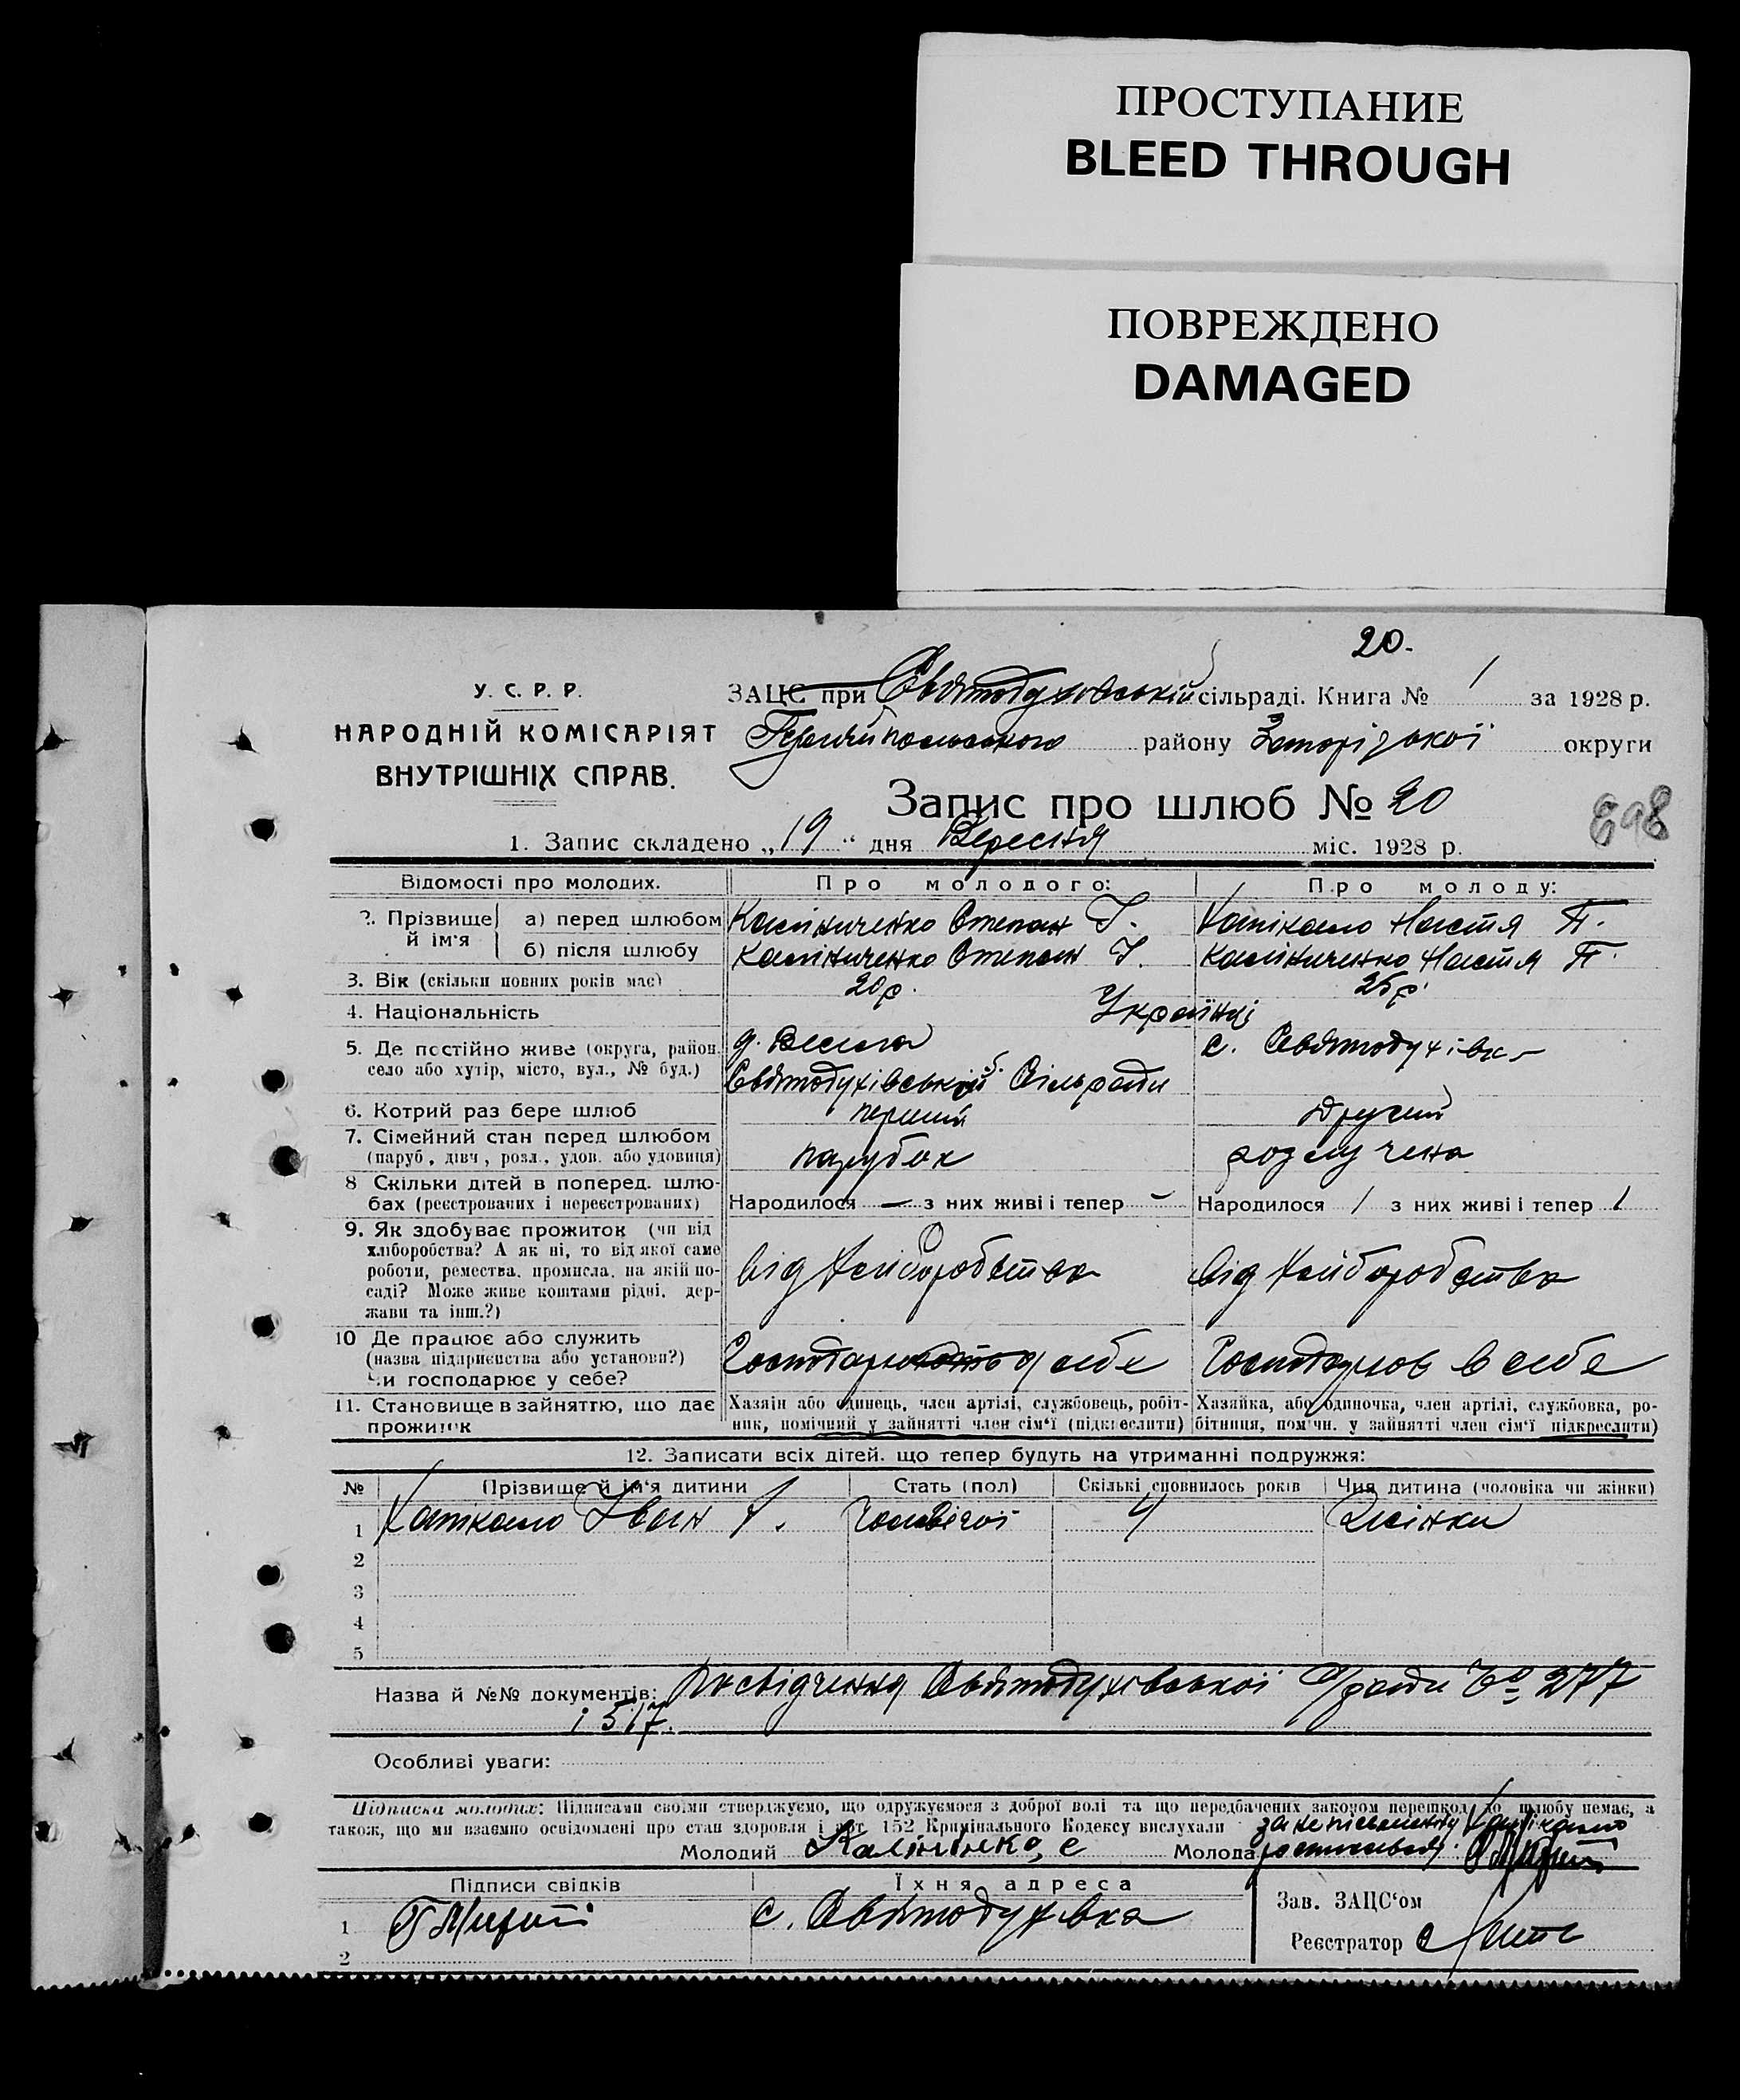 ПРОСТУПАНИЕ
BLEED THROUGH
ПОВРЕЖДЕНО
DAMAGED
20.
У. С. Р. Р.
НАРОДНІЙ КОМІСАРІЯТ
ВНУТРІШНІХ СПРАВ.
ЗАЦС при Святодуховській сільраді. Книга № 1 за 1928 р.
району Запорізької округи
Запис про шлюб № 20
1. Запис складено „19“ дня Вересня міс. 1928 р.
Відомості про молодих. Про молодого: Про молоду:
2. Прізвище й ім'я а) перед шлюбом Калініченко Степан І. Настя П.
б) після шлюбу Калініченко Степан І. Калініченко Настя П.
3. Вік (скільки повних років має) 20 р. 25 р.
4. Національність Українці
5. Де постійно живе (округа, район, село або хутір, місто, вул., № буд.) д. Весела с. Святодухівка
Святодухівської Сільради
6. Котрий раз бере шлюб перший другий
7. Сімейний стан перед шлюбом (паруб., дівч., розл., удов. або удовиця) парубок розлучена
8 Скільки дітей в поперед. шлюбах (реєстрованих і нереєстрованих) Народилося — з них живі і тепер — Народилося 1 з них живі і тепер 1
9. Як здобуває прожиток (чи від
хліборобства? А як ні, то від якої саме
роботи, ремества, промисла, на якій посаді? Може живе коштами рідні, держави та інш.?) від хліборобства від хліборобства
10 Де працює або служить
(назва підприємства або установи?)
Чи господарює у себе? у себе Господарює в себе
11. Становище в зайняттю, що дає прожиток
Хазяін або одинець, член артілі, службовець, робітник, помічний у зайнятті член сім'ї (підкреслити)
Хазяйка, або одиночка, член артілі, службовка, робітниця, помічн. у зайнятті член сім'ї підкреслити)
12. Записати всіх дітей, що тепер будуть на утриманні подружжя:
№ Прізвище й ім'я дитини Стать (пол) Скількі сповнилось років Чия дитина (чоловіка чи жінки)
1 Іван чоловічої 4 Жінки
2
3
4
5
Назва й №№ документів: Посвідчення Святодухівської с/ради № 277
і 517.
Особливі уваги:
Підписка молодих: Підписами своіми стверджуємо, що одружуємося з доброї волі та що передбачених законом перешкод до шлюбу немає, а
також, що ми взаємно освідомлені про стан здоровля і арт. 152 Кримінального Кодексу вислухали
за неписьменну
Молодий Молода росписався
Підписи свідків Їхня адреса
1 с. Святодухівка
2
Зав. ЗАЦС'ом
Реєстратор